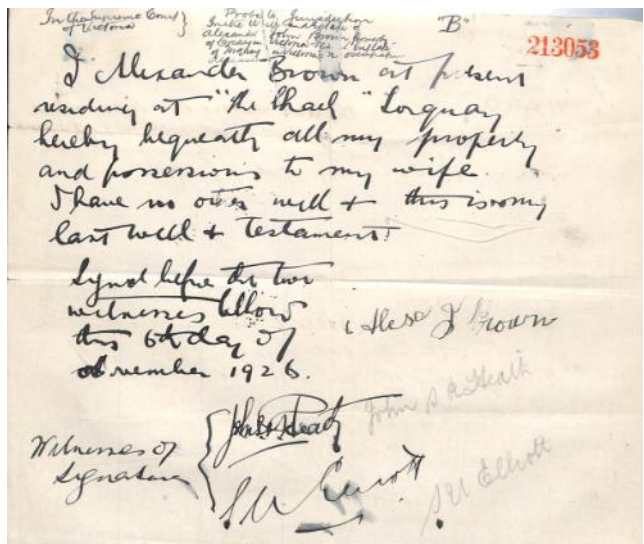 In the Supreme Court
of Victoria
Probate Jurisdiction
In the Will
Alexander John Brown formerly
of Victoria
of Torquay
"B"
213053
I Alexander Brown at present
residing at "the Shack" Torquay
hereby bequeath all my property
and possessions to my wife.
I have no other will + this is my
last will + testament.
Signed before the two
witnesses below
this 6th day of
November 1926.
Alex J Brown
John S R Heath
John S R Heath
Witnesses of
Signature
S W Elliott
S W Elliott